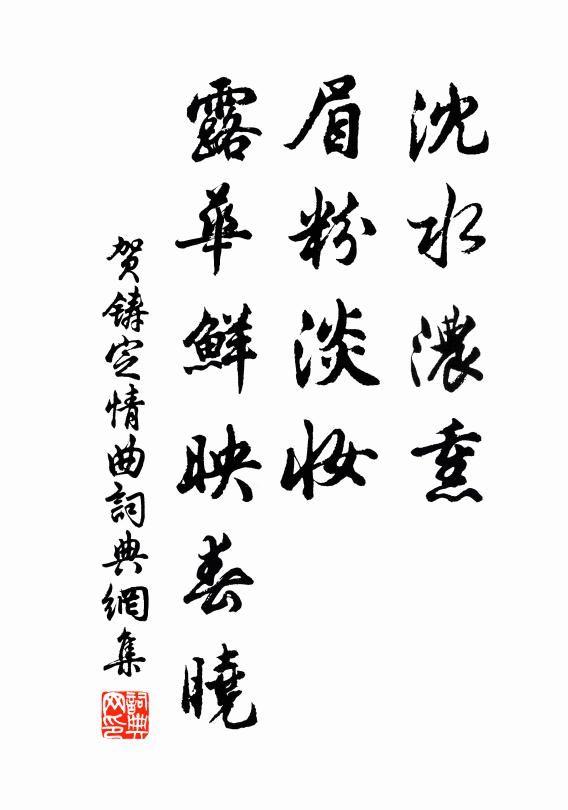 沈水濃熏
眉粉淡妝
露華鮮映春曉
賀鑄定情曲詞典網集
詞典网印